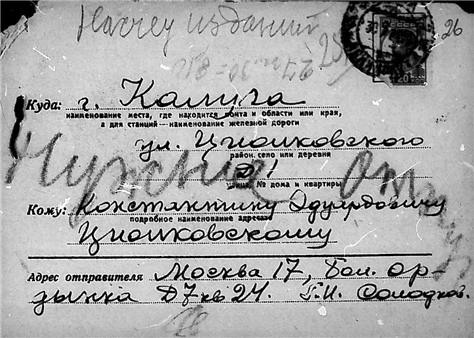 Насчет изданий
26
Куда: г. Калуга
наименование места, где находится почта и области или края,
а для станций—наименование железной дороги
ул. Циолковского
район, село или деревня
Д 1
улица, № дома и квартиры
Нужно
Кому: Константину Эдуардовичу
подробное наименование адресата
Циолковскому
Адрес отправителя Москва 17, Бол. Ор-
дынка Д7 кв 24. Г.И. Солодков.